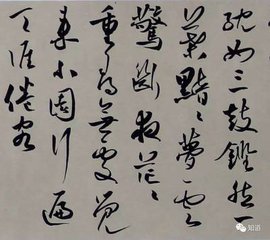 紞如三鼓鏗然一
葉黯〻夢雲
驚斷夜茫〻
重尋無處覺
來小園行遍
天涯倦客
知道